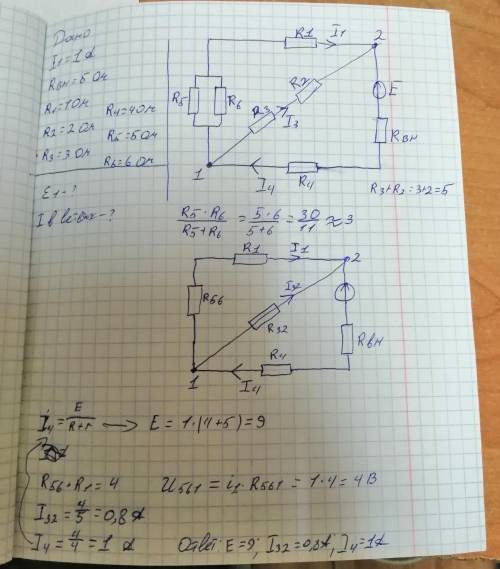 Дано
I1 = 1A
Rвн = 5 Ом
R1 = 1 Ом R4 = 4 Ом
R2 = 2 Ом R5 = 5 Ом
R3 = 3 Ом R6 = 6 Ом
E1 - ?
I в
R1 I1 2
R5 R6 R3 R2 I3 E
Rвн
1 I4 R4
R3+R2 = 3+2 = 5
R5·R6/R5+R6 = 5·6/5+6 = 30/11 ≈ 3
R1 I1 2
R56 R32 I32
Rвн
R4
1 I4
I4 = E/R+r → E = 1·(4+5) = 9
R56+R1 = 4 U561 = i1·R561 = 1·4 = 4 В
I32 = 4/5 = 0,8 A
I4 = 4/4 = 1 A Ответ: E = 9; I32 = 0,8A, I4 = 1A